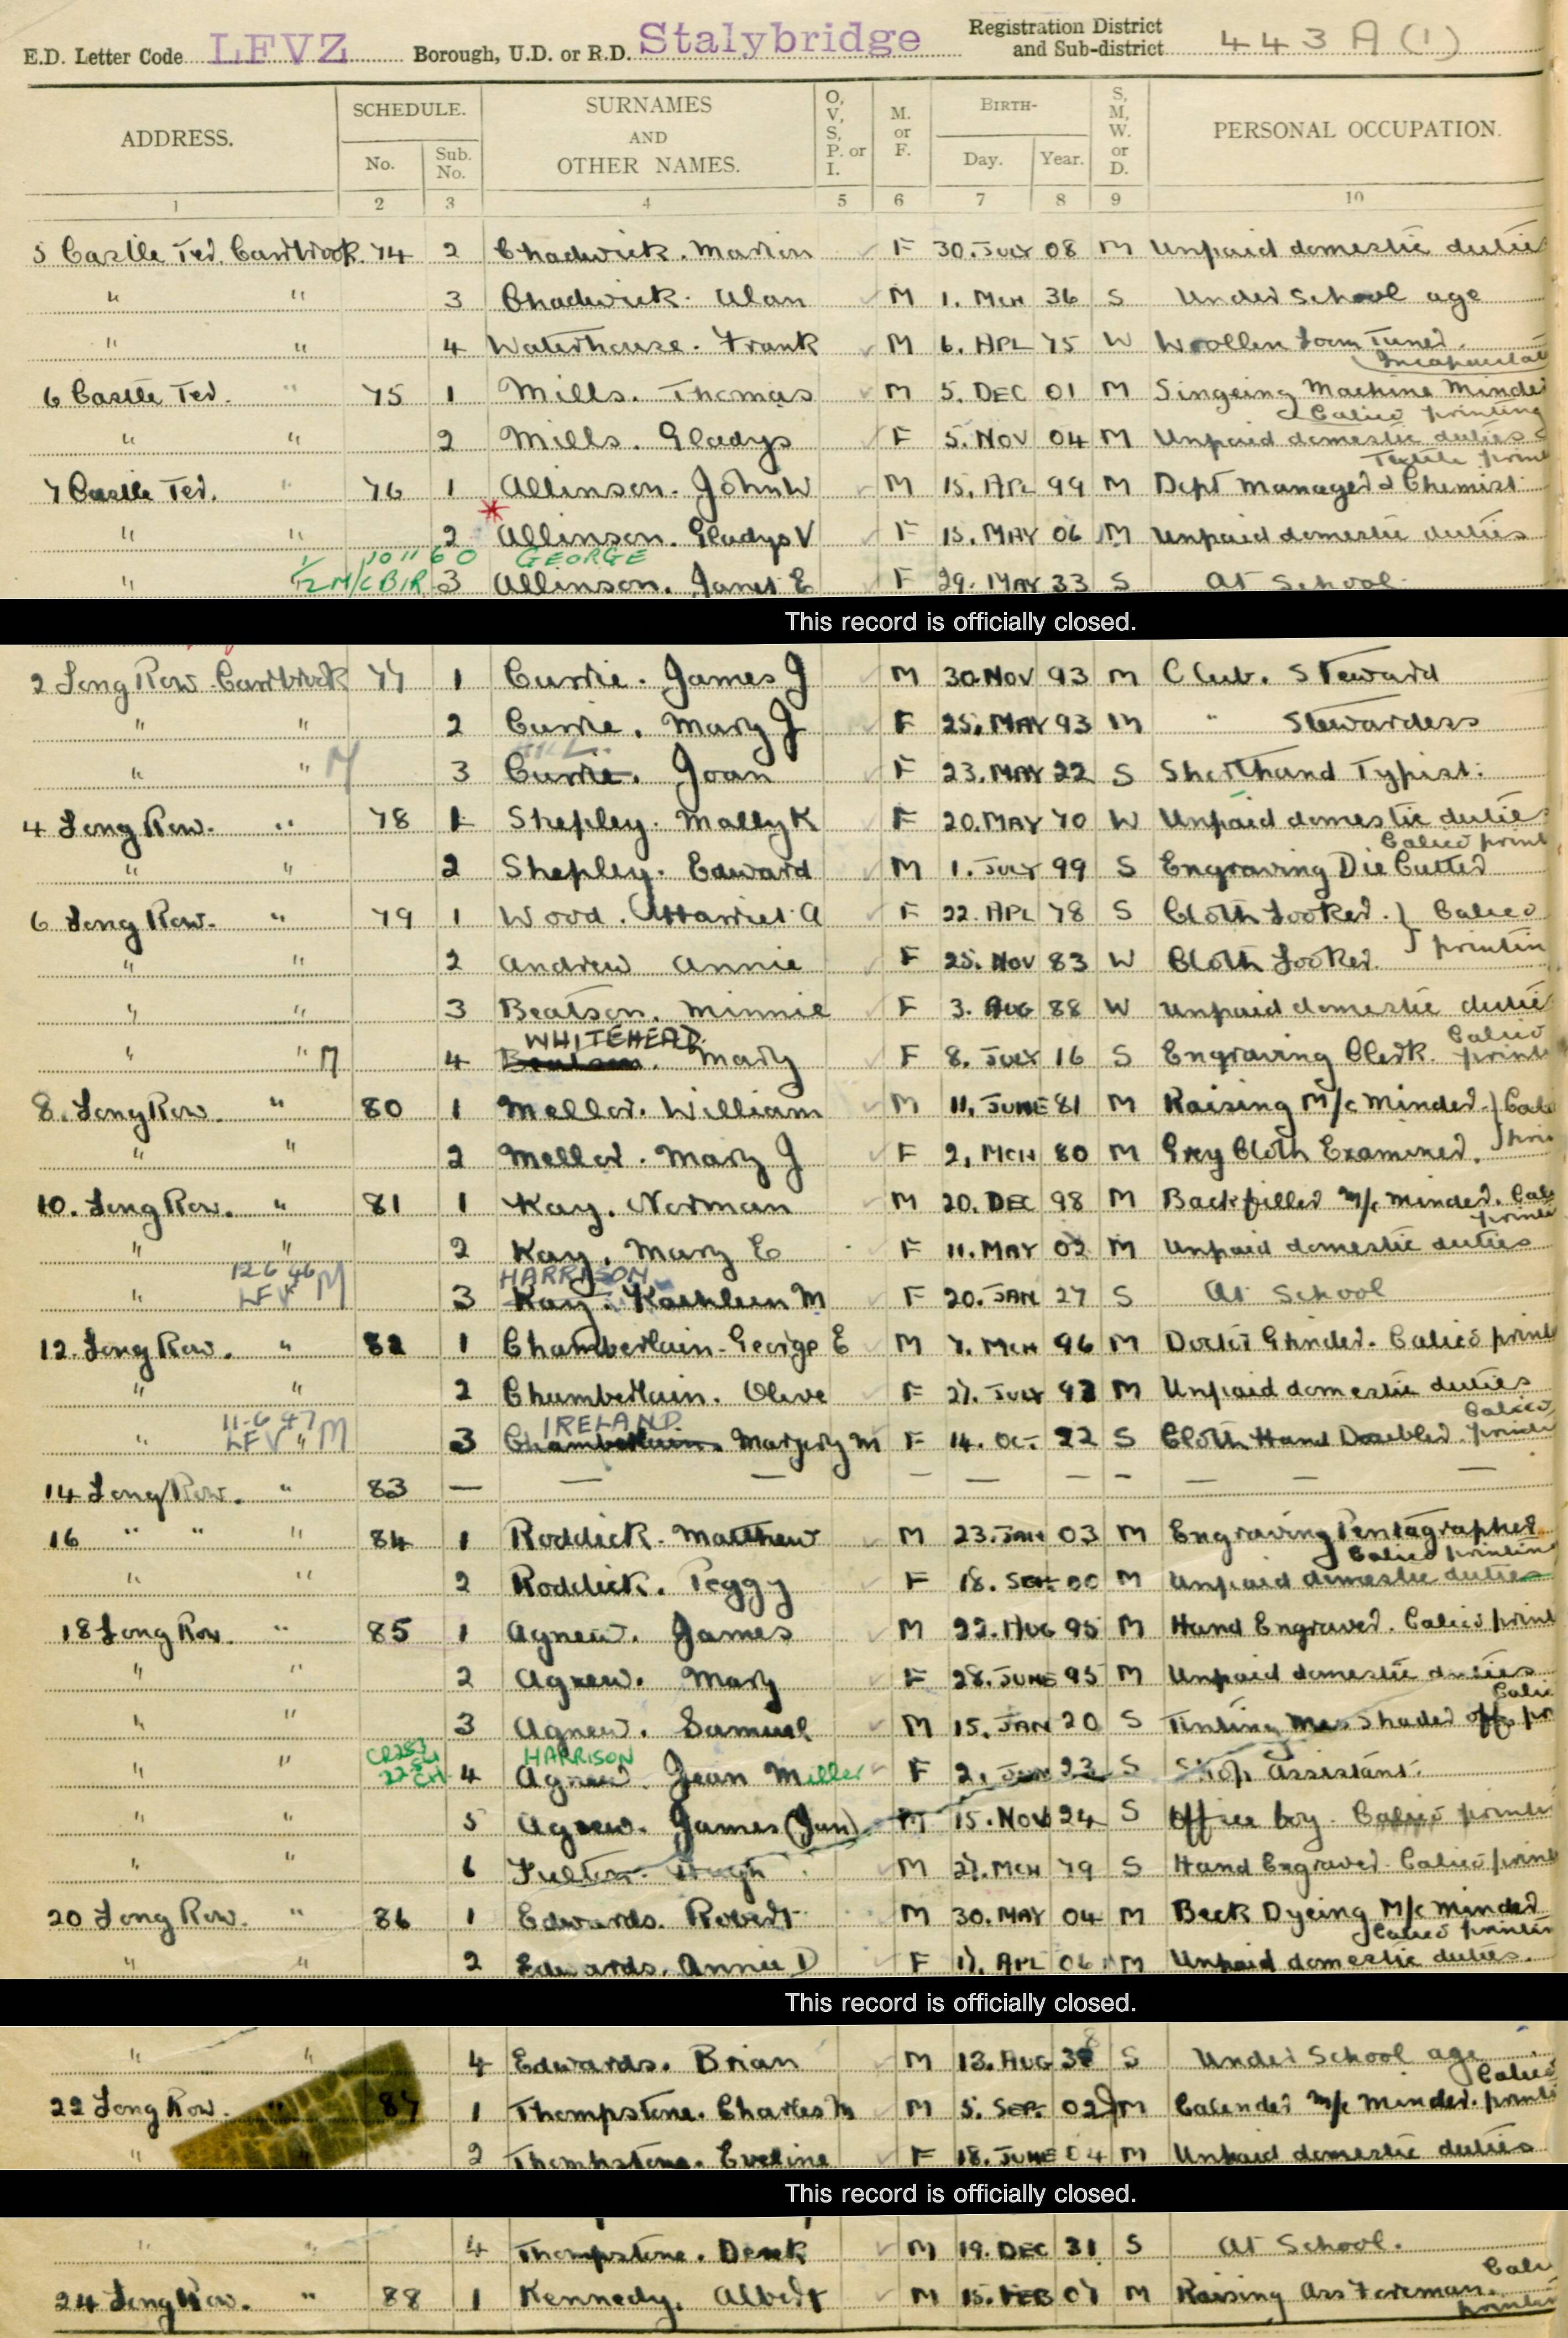 E.D. Letter Code LFVZ Borough, U.D. or R.D. Stalybridge Registration District and Sub-district 443 A (1)
ADDRESS. SCHEDULE. No. Sub. No. SURNAMES AND OTHER NAMES. O, V, S, P. or I. M. or F. BIRTH- Day. Year. S, M, W. or D. PERSONAL OCCUPATION.
1 2 3 4 5 6 7 8 9 10
5 Castle Ter. Carrbrook 74 2 Chadwick. Marion F 30. JULY 08 M Unpaid domestic duties
" " 3 Chadwick. Alan M 1. MCH 36 S Under School age
" " 4 Waterhouse. Frank M 6. APL 75 W Woollen Loom Tuner.
Incapacitat
6 Castle Ter. " 75 1 Mills. Thomas M 5. DEC 01 M Singeing Machine Minder
Calico printing
" " 2 Mills. Gladys F 5. NOV 04 M Unpaid domestic duties
Textile print
7 Castle Ter. " 76 1 Allinson. John W M 15. APL 99 M Dept Manager & Chemist
" " 2 Allinson. Gladys V F 15. MAY 06 M Unpaid domestic duties
10 11 60 GEORGE
" M/C BIR 3 Allinson. Janet E F 29. MAY 33 S At School.
This record is officially closed.
2 Long Row Carrbrook 77 1 Currie. James J M 30 NOV 93 M Club. Steward
" " 2 Currie. Mary J F 25. MAY 93 M " Stewardess
" " M 3 Currie. Joan F 23. MAY 22 S Shorthand Typist.
4 Long Row. " 78 1 Shepley. Mally K F 20. MAY 70 W Unpaid domestic duties
Calico print
" " 2 Shepley. Edward M 1. JULY 99 S Engraving Die Cutter
6 Long Row. " 79 1 Wood. Harriet A F 22. APL 78 S Cloth Looker. } Calico
printin
" " 2 Andrew Annie F 25. NOV 83 W Cloth Looker.
" " 3 Beatson. Minnie F 3. AUG 88 W Unpaid domestic duties
WHITEHEAD Calico
" " M 4 Beatson. Mary F 8. JULY 16 S Engraving Clerk. print
8. Long Row. " 80 1 Mellor. William M 11. JUNE 81 M Raising M/c Minder. } Cali
" " 2 Mellor. Mary J F 2. MCH 80 M Grey Cloth Examiner. prin
10. Long Row. " 81 1 Kay. Norman M 20. DEC 98 M Backfiller M/c Minder. Cali
printi
" " 2 Kay. Mary E F 11. MAY 02 M Unpaid domestic duties
12 6 46 M HARRISON
" LFV 3 Kay. Kathleen M F 20. JAN 27 S At School
12. Long Row. " 82 1 Chamberlain. George E M 7. MCH 96 M Doctor Grinder. Calico print
" " 2 Chamberlain. Olive F 27. JULY 93 M Unpaid domestic duties
11-6 47 M IRELAND Calico
" LFV " 3 Chamberlain Margery M F 14. OC. 22 S Cloth Hand Doubler. printi
14 Long Row. " 83 — — — — — — — — — —
16 " " " 84 1 Roddick. Matthew M 23. JAN 03 M Engraving Pentagrapher
Calico printin
" " 2 Roddick. Peggy F 18. SEP. 00 M Unpaid domestic duties
18 Long Row. " 85 1 Agnew. James M 22. AUG 95 M Hand Engraver. Calico print
" " 2 Agnew. Mary F 28. JUNE 95 M Unpaid domestic duties
Calic
" " 3 Agnew. Samuel M 15. JAN 20 S Tinting Shader off pr
CR283 HARRISON
" " 4 Agnew. Jean Miller F 2. JAN 23 S Shop Assistant.
" " 5 Agnew. James (Jun) M 15. NOV 24 S Office boy. Calico printi
" " 6 Fulton. Hugh M 27. MCH 79 S Hand Engraver. Calico print
20 Long Row. " 86 1 Edwards. Robert M 30. MAY 04 M Beck Dyeing M/c Minder
Calico printin
" " 2 Edwards. Annie D F 17. APL 06 M Unpaid domestic duties.
This record is officially closed.
" " 4 Edwards. Brian M 13. AUG 38 S Under School age
Calico
22 Long Row. " 87 1 Thompstone. Charles M M 5. SEP. 02 M Calender M/c Minder. printi
" " 2 Thompstone. Eveline F 18. JUNE 04 M Unpaid domestic duties
This record is officially closed.
" " 4 Thompstone. Derek M 19. DEC 31 S At School.
Cali
24 Long Row. " 88 1 Kennedy. Albert M 15. FEB 07 M Raising Ass Foreman.
printin